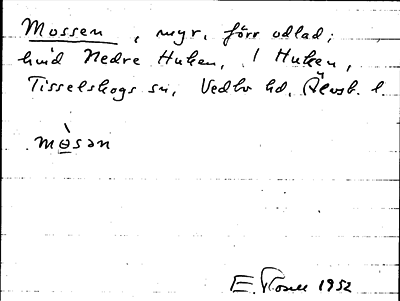 Mossen, myr, förr odlad;
hvid Nedre Huken, / Huken,
Tisselskogs sn, Vedbo hd, Älvsb. l.
mò̱sən
E. 1952